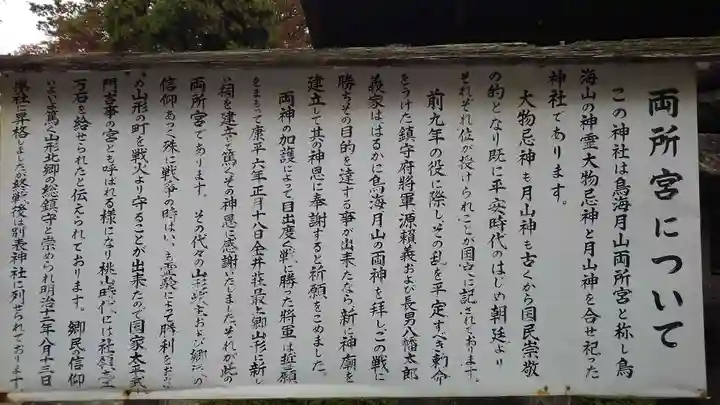 両所宮について
この神社は鳥海月山両所宮と称し鳥
海山の神霊大物忌神と月山神を合せ祀った
神社であります。
大物忌神も月山神も古くから国民崇敬
の的となり既に平安時代のはじめ朝廷より
それぞれ位が授けられことが国史に記されております。
前九年の役に際し、その乱を平定すべき勅命
をうけた鎮守府将軍源頼義および長男八幡太郎
義家ははるかに鳥海月山の両神を拝しこの戦に
勝ちその目的を達する事が出来たなら新に神廟を
建立して其の神恩に奉謝すると祈願をこめました。
両神の加護によって目出度く戦に勝った将軍は
をまもって康平六年正月十八日金井荘最上郷山形に新し
い祠を建立て篤くその神恩に感謝いたしました。それが此の
両所宮であります。その代々の山形
信仰あつく殊に戦争の時はいつも霊験によって勝利を
山形の町を戦火より守ることが出来たので国家太平
門吉事の宮とも呼ばれる様になり桃山時代には社領
万石を給せられたと伝えられております。郷民の信仰
いよいよ篤く山形北郷の総鎮守と崇められ明治十二年八月十三日
県社に昇格しましたが終戦後は別表神社に列せられております。